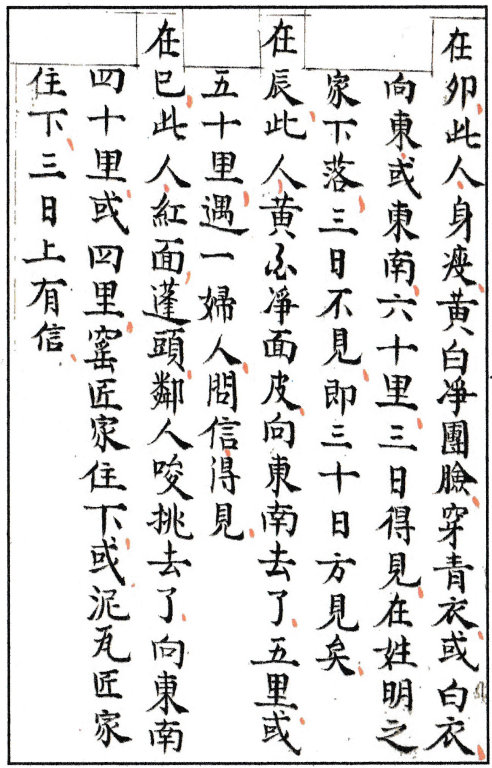 在卯此人身瘦黄白净團臉穿青衣或白衣
向東或東南六十里三日得見在姓明之
家下落三日不見即三十日方見矣
在辰此人黄色净面皮向東南去了五里或
五十里遇一婦人問信得見
在巳此人紅面蓬頭鄰人唆挑去了向東南
四十里或四里窰匠家住下或泥瓦匠家
住下三日上有信